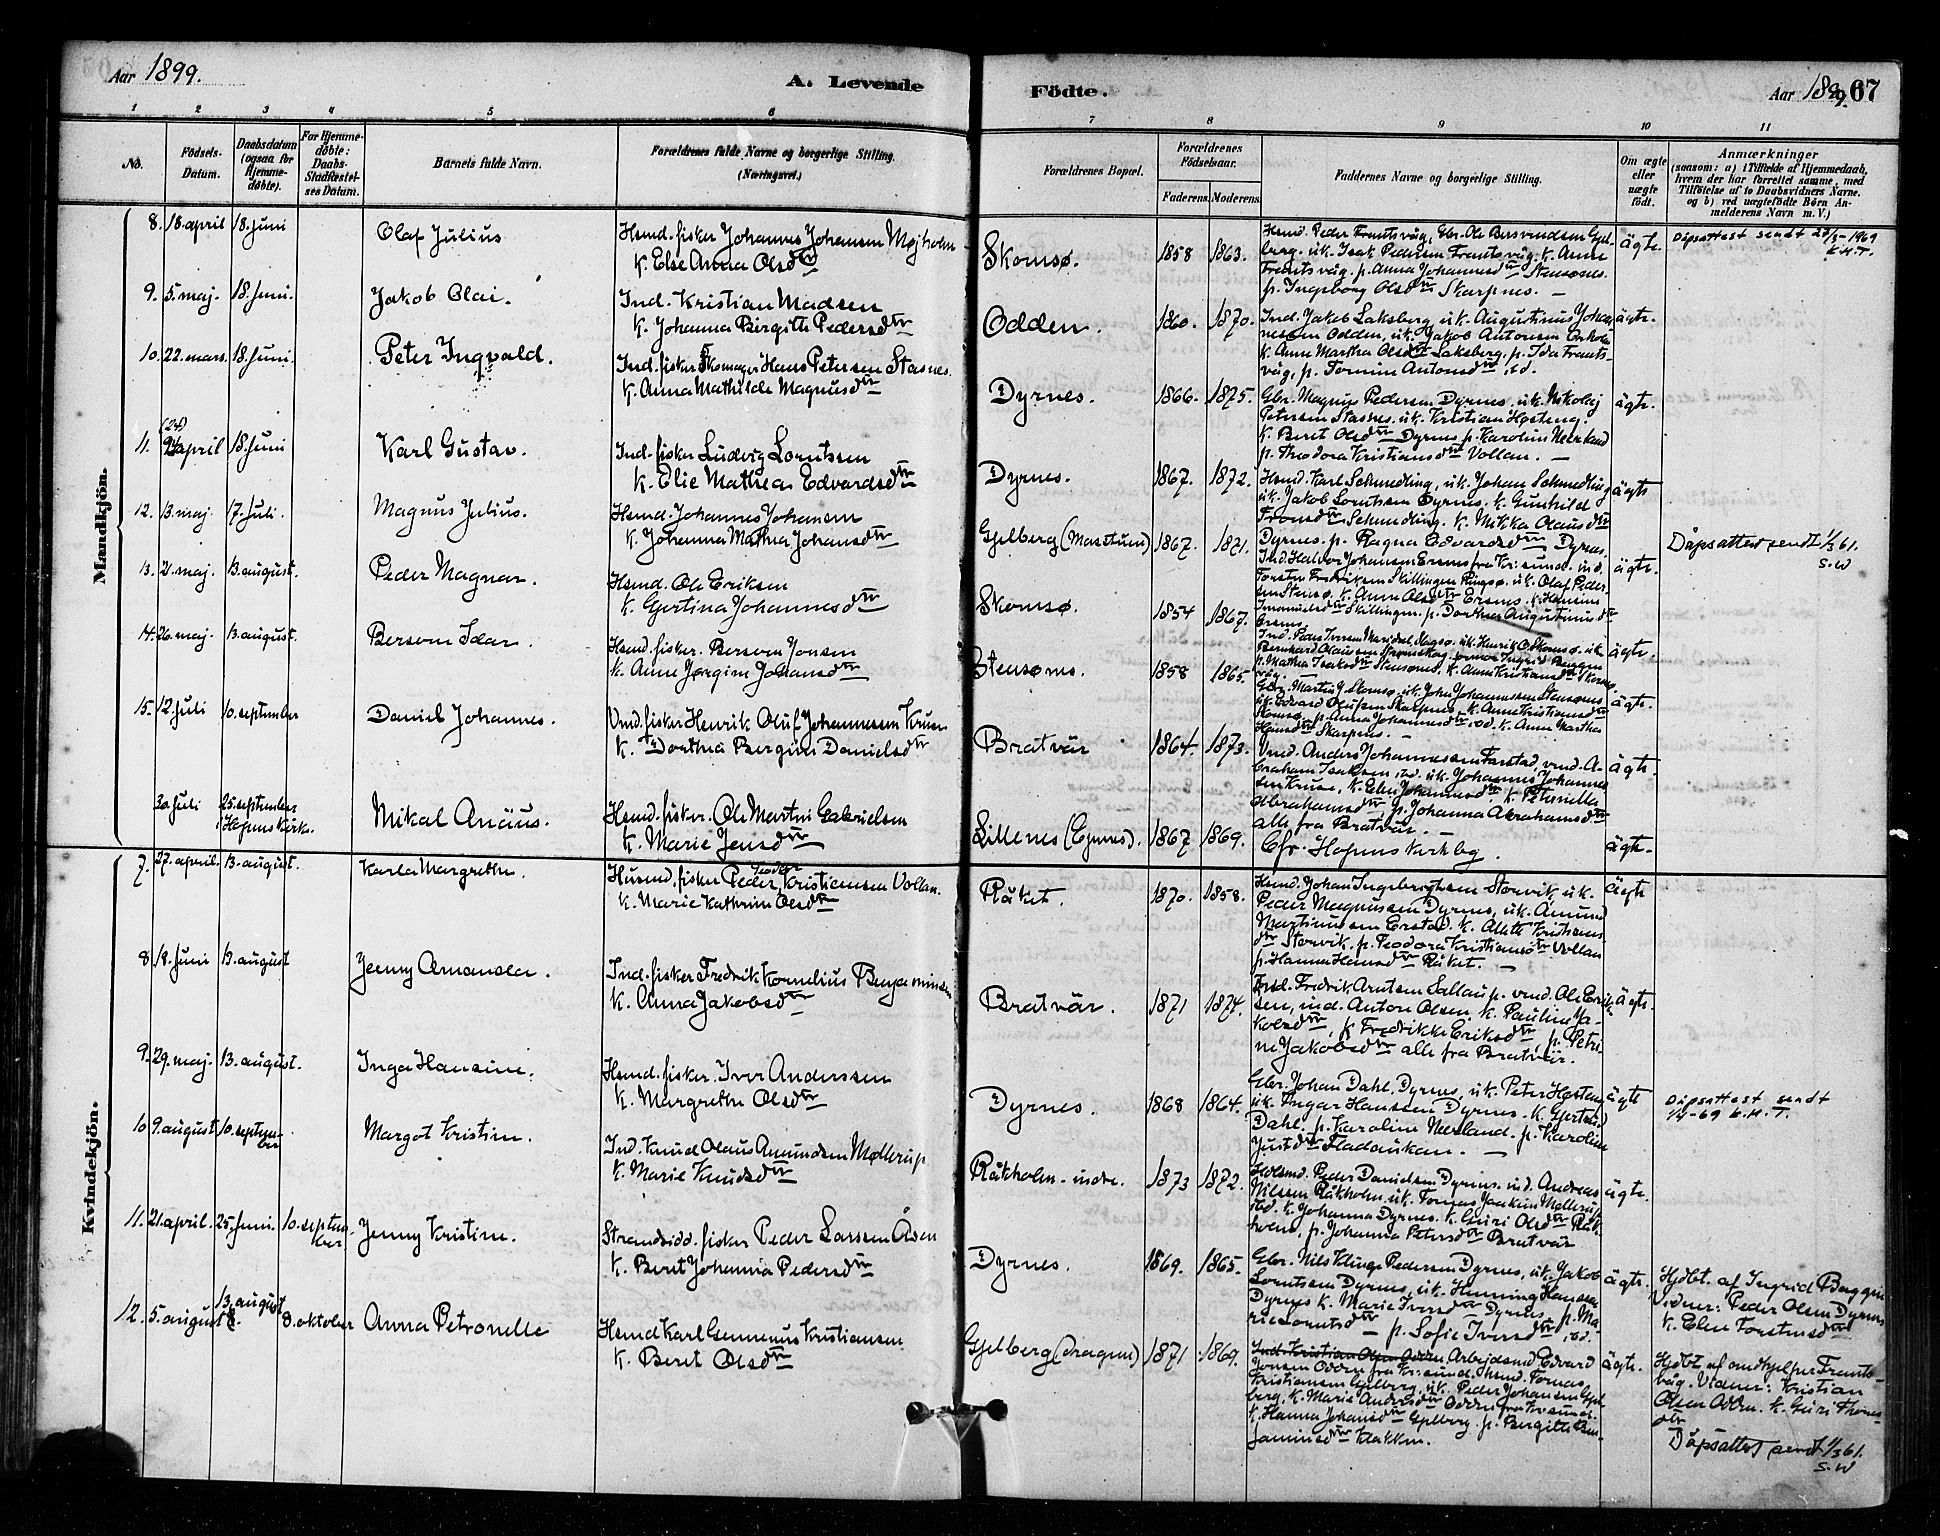 Aar 1899.
A. Levende
Födte.
Aar 1899.
67
1 2 3 4 5 6 7 8 9 10 11
No.
Födsels-
Datum.
Daabsdatum
(ogsaa for
Hjemme-
døbte).
For Hjemme-
døbte:
Daabs-
Stadfæstel-
ses Datum.
Barnets fulde Navn.
Forældrenes fulde Navne og borgerlige Stilling.
(Næringsvei.)
Forældrenes Bopæl.
Forældrenes
Födselsaar.
Faderens. Moderens.
Faddernes Navne og borgerlige Stilling.
Om ægte
eller
uægte
födt.
Anmærkninger
(saasom: a) i Tilfælde af Hjemmedaab,
hvem der har forrettet samme, med
Tilföielse af to Daabsvidners Navne,
og b) ved uægtefödte Börn An-
melderens Navn m. V.)
Mandkjön.
8. 18. april 18. juni
Olaf Julius
Hsmd. fisker Johannes Johansen Mejholm
K. Else Anna Olsdtr
Skomsø. 1858 1863.
Hsmd. Peder Frantsvåg, Gbr. Ole Bersvendsen Gjel-
berg. uk. Isak Pedersen Frantsvåg. K. Anne
Frantsvåg. p. Anna Johannesdtr Stensønes.
p. Ingeborg Olsdtr Skarpnes. —
ägte.
Dåpsattest sendt
E.H.T.
9. 5. maj. 18. Juni.
Jakob Olai.
Ind. Kristian Madsen
K. Johanna Birgitte Pedersdtr
Odden. 1860. 1870.
Ind. Jakob Laksberg, uk. Augustinus Johan-
nessen Odden, uk. Jakob Antonsen
K. Anne Martha Olsdtr Laksberg. p. Ida Frants-
våg, p. Antonsdtr, ibd.
ägte.
10. 22. mars. 18. Juni.
Peter Ingvald.
Ind. fisker Skomager Hans Petersen Stasnes.
K. Anna Mathilde Magnusdtr
Dyrnes. 1866. 1875.
Gbr. Magnus Pedersen Dyrnes, uk. Nikolaj
Petersen Stasnes. uk. Kristian Høsteng.
K. Beret Olsdtr Dyrnes p. Karoline Neerland
p. Theodora Kristiansdtr Vollan. —
ägte.
11. (24) april 18. Juni
Karl Gustav.
Ind. fisker Ludvig Lorntsen
K. Elie Mathea Edvardsdtr
Dyrnes. 1867. 1872.
Hsmd. Karl Schmedling, uk. Johan Schmedling
uk. Jakob Lorntsen Dyrnes. K. Gunhild
Schmedling. K. Mikka Olausdtr
Dyrnes. p. Ragna Edvardsdtr Dyrnes.
ägte
12. 13. maj. 17. Juli.
Magnus Julius.
Hsmd. Johannes Johansen
K. Johanna Mathea Johansdtr
Gjelberg (Masstuen) 1867. 1871.
Ind. Halvor Johansen Ersnes fra Kr.sund. ind.
Torsten Fredriksen Skillingen Ringsø. uk. Olaf Peder-
sen Stensø. K. Anna Olsdtr Ersnes. K. Hansine
Skillingen. p. Dorthea Augustinusdtr
Ersnes.
ägte.
Dåpsattest sendt 1/3 61.
S.W
13. 21. maj. 13. august.
Peder Magnar.
Hsmd. Ole Eriksen
K. Gjertina Johannesdtr
Skomsø. 1854 1867.
Ind. Peder Iversen uk. Henrik O. Skomsø. uk.
Bernhard Olaussen
p. Mathea Isaksdtr Stensønes. K. Anne Kristiansdtr
ägte.
14. 26. maj. 13. august.
Berson Idar.
Hsmd. fisker. Berson Jonsen
K. Anne Jørgine Johansdtr
Stensønes. 1858 1865.
Gbr. Martin J. Skomsø. uk. John Johannessen Stensønes
uk. Edvard Olufsen Skarpnes. K. Anne Kristiansdtr
Skomsø, p. Anna Johannesdtr, ibd. K. Anne Martha
Hansdtr Skarpnes. —
ägte.
15. 12. Juli 10. september
Daniel Johannes.
Vmd. fisker Henrik Oluf Johannessen Kruse
K. Dorthea Bergine Danielsdtr
Bratvär 1864. 1873.
Vmd. Anders Johannessen Farstad, vmd. A-
braham Isaksen, ibd. uk. Johannes Johannes-
sen Kruse, K. Elen Johannesdtr, K. Petrnella
Abrahamsdtr, p. Johanna Abrahamsdtr
alle fra Bratvär. —
ägte.
30. Juli 25. september
i Hopens Kirke.
Mikal Anäus.
Hsmd. fisker. Ole Martin Gabrielsen
K. Marie Jensdtr
Lillenes (Gjernes). 1867 1869.
Cfr. Hopens Kirkbg.
ägte.
Kvindekjön.
7. 27. april. 13. august.
Karla Margrethe.
Husmd. fisker Peder Teodor Kristiansen Vollan.
K. Marie Kathrine Olsdtr
Råket. 1870. 1858.
Hsmd. Johan Ingebrigtsen Storvik, uk.
Peder Magnussen Dyrnes, uk. Amund
Martinussen Erstad. K. Alette Kristians-
dtr Storvik. p. Teodora Kristiansdtr Vollan
p. Hanna Hansdtr Råket. —
ägte
8 18. Juni 13. august
Jenny Amanda.
Ind. fisker Fredrik Kornelius Benjaminsen
K. Anna Jakobsdtr
Bratvär. 1871 1874.
Insd. Fredrik Arntsen vmd. Ole Erik-
sen, ind. Anton Olsen, K. Pauline Ja-
kobsdtr, p. Fredrikke Eriksdtr, p. Petri-
ne Jakobsdtr alle fra Bratvär.
ägte.
9. 29. maj. 13. august.
Inga Hansine.
Hsmd. fisker. Iver Anderssen
K. Margrethe Olsdtr
Dyrnes. 1868 1864.
Gbr. Johan Dahl. Dyrnes, uk. Peter Høsten
uk. Ingvar Hanssen Dyrnes. K. Gjertrud
Dahl. p. Karoline Neerland. p. Karoline
Justdtr Fladaukan. —
ägte
Dåpsattest sendt
1/4-69 E.H.T.
10 9. august 10. septem-
ber
Margot Kristine.
Ind. Knud Olaus Amundsen Møllerup
K. Marie Knudsdtr
Råkholm-indre. 1873 1872.
Peder Danielsen Dyrnes. ind. Andreas
Nilssen Råkholm, uk. Tomas Joakim Møllerup
ibd. K. Johanna Dyrnes. K. Guri Olsdtr Råk-
holm, p. Johanna Petersdtr Bratvär
ägte.
11. 21. april. 25. Juni. 10. septem-
ber.
Jenny Kristine.
Strandsidd. fisker Peder Larssen Åsen
K. Beret Johanna Pedersdtr
Dyrnes. 1869. 1865.
Gbr. Nils Klinge Pedersen Dyrnes, uk. Jakob
Lorntsen Dyrnes, uk. Henning Hanssen
Dyrnes K. Marie Iversdtr Dyrnes, p. Ma-
rie Lorntsdtr — p. Sofie Iversdtr, ibd.
ägte.
Hjdbt. af Ingrid Baggen
Vidner: Peder Olsen Dyrnes
K. Elen Torstensdtr
12. 5. august 13. august 8. oktober
Anna Petronelle
Hsmd Karl Gennenus Kristiansen
K. Beret Olsdtr
Gjelberg (Dragene) 1871 1869.
Ind. Kristian Olsen Odden Arbejdsmd Edvard
Jonsen Odden fra Kr.sund. Hsmd. Tomas
Kristiansen Gjelberg, uk. Peder Johansen Gjel-
berg. K. Marie Andersdtr Odden fra Kr.sund.
K. Hanna Johansdtr Gjelberg. p. Bergitte Ben-
jaminsdtr Klakken.
ägte.
Hjdbt. af omdhjelper Frants-
våg. Vidner: Kristian
Olsen Odden. K. Guri Thomes-
dtr
Dåpsattest sendt 1/3 61.
S.W